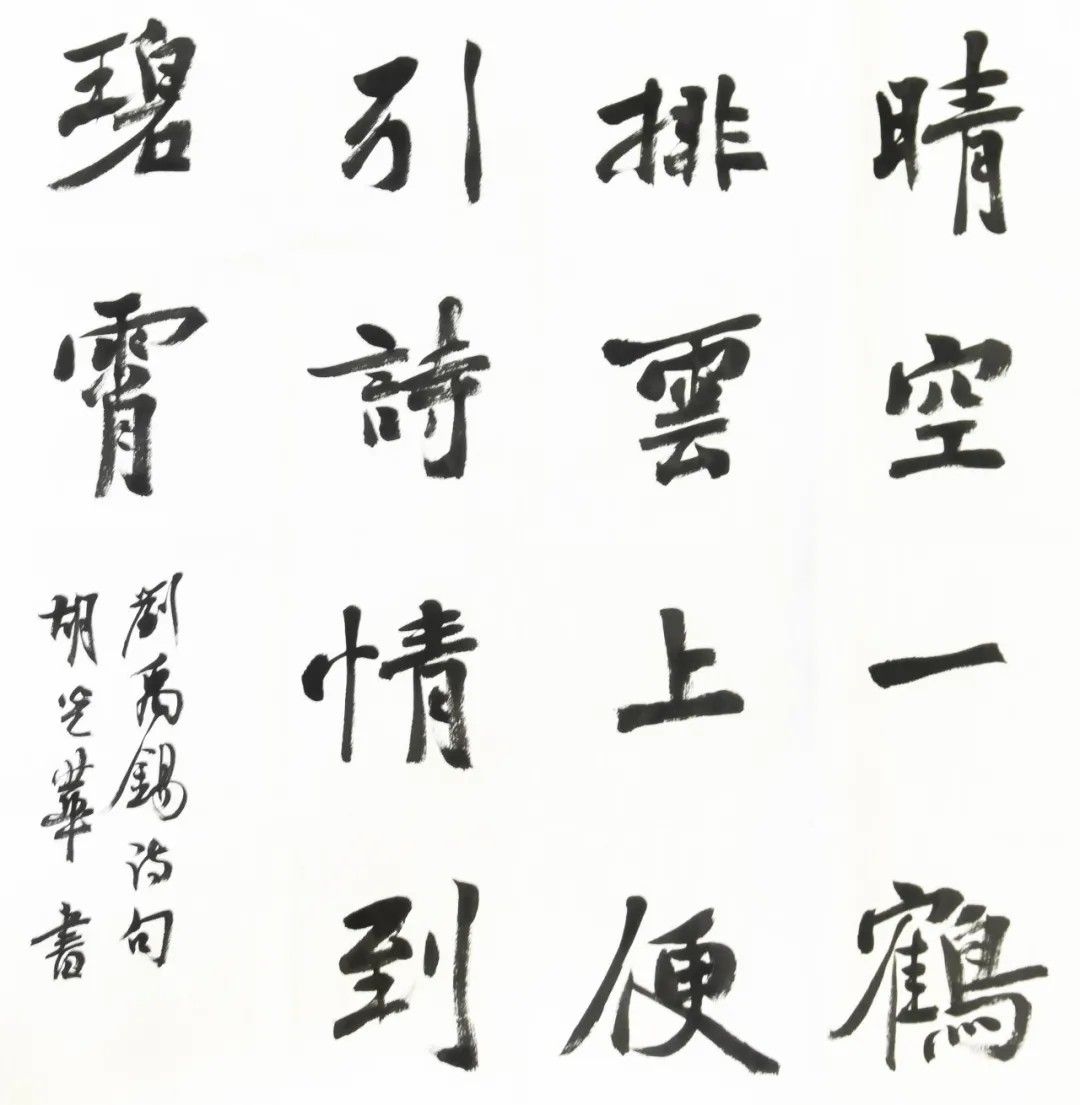 晴空一鶴
排雲上便
引詩情到
碧霄
劉禹錫诗句
胡芝華書